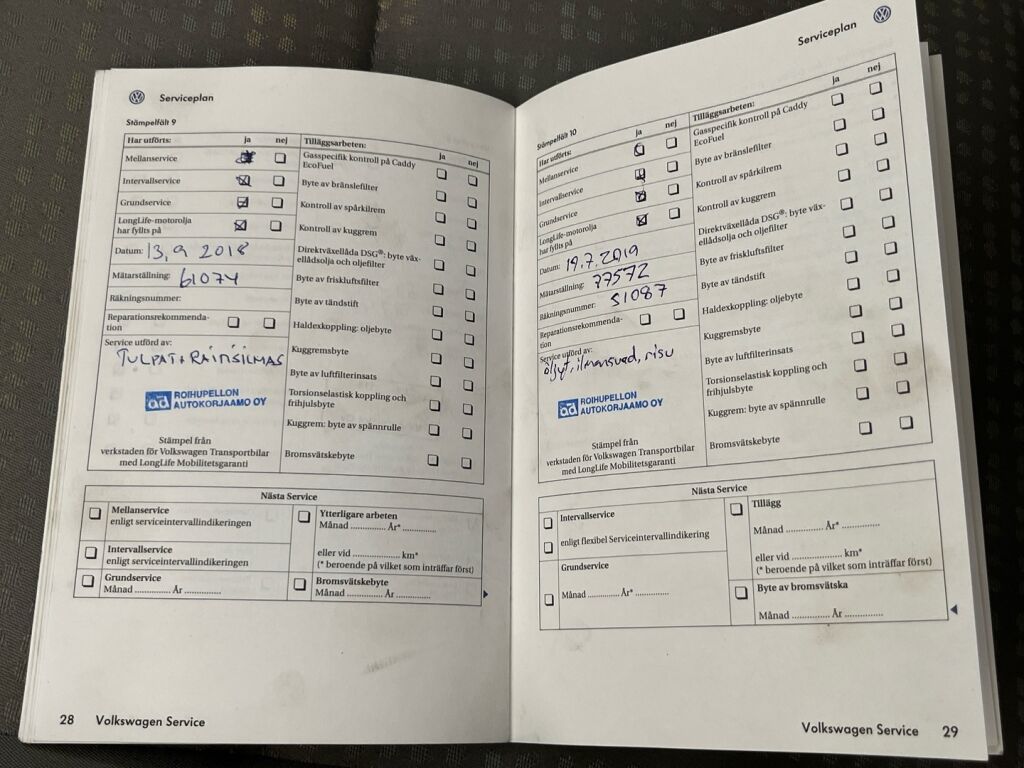 Serviceplan
Stämpelfält 9
Har utförts: ja nej
Mellanservice
Intervallservice
Grundservice
LongLife-motorolja
har fyllts på
Datum: 13.9 2018
Mätarställning: 61074
Räkningsnummer:
Reparationsrekommenda-
tion
Service utförd av:
TULPAT + RAITISILMAS
ad ROIHUPELLON
AUTOKORJAAMO OY
Stämpel från
verkstaden för Volkswagen Transportbilar
med LongLife Mobilitetsgaranti
Tilläggsarbeten: ja nej
Gasspecifik kontroll på Caddy
EcoFuel
Byte av bränslefilter
Kontroll av spårkilrem
Kontroll av kuggrem
Direktväxellåda DSG®: byte väx-
ellådsolja och oljefilter
Byte av friskluftsfilter
Byte av tändstift
Haldexkoppling: oljebyte
Kuggremsbyte
Byte av luftfilterinsats
Torsionselastisk koppling och
frihjulsbyte
Kuggrem: byte av spännrulle
Bromsvätskebyte
Nästa Service
Mellanservice
enligt serviceintervallindikeringen
Intervallservice
enligt serviceintervallindikeringen
Grundservice
Månad .............. År ..............
Ytterligare arbeten
Månad .............. År* ..............
eller vid .................... km*
(* beroende på vilket som inträffar först)
Bromsvätskebyte
Månad .............. År ..............
28 Volkswagen Service
Serviceplan
Stämpelfält 10
Har utförts: ja nej
Mellanservice
Intervallservice
Grundservice
LongLife-motorolja
har fyllts på
Datum: 19.7.2019
Mätarställning: 77572
Räkningsnummer: 51087
Reparationsrekommenda-
tion
Service utförd av:
öljyt, ilmansuod, risu
ad ROIHUPELLON
AUTOKORJAAMO OY
Stämpel från
verkstaden för Volkswagen Transportbilar
med LongLife Mobilitetsgaranti
Tilläggsarbeten: ja nej
Gasspecifik kontroll på Caddy
EcoFuel
Byte av bränslefilter
Kontroll av spårkilrem
Kontroll av kuggrem
Direktväxellåda DSG®: byte väx-
ellådsolja och oljefilter
Byte av friskluftsfilter
Byte av tändstift
Haldexkoppling: oljebyte
Kuggremsbyte
Byte av luftfilterinsats
Torsionselastisk koppling och
frihjulsbyte
Kuggrem: byte av spännrulle
Bromsvätskebyte
Nästa Service
Intervallservice
enligt flexibel Serviceintervallindikering
Grundservice
Månad .............. År* ..............
Tillägg
Månad .............. År* ..............
eller vid .................... km*
(* beroende på vilket som inträffar först)
Byte av bromsvätska
Månad .............. År ..............
Volkswagen Service 29